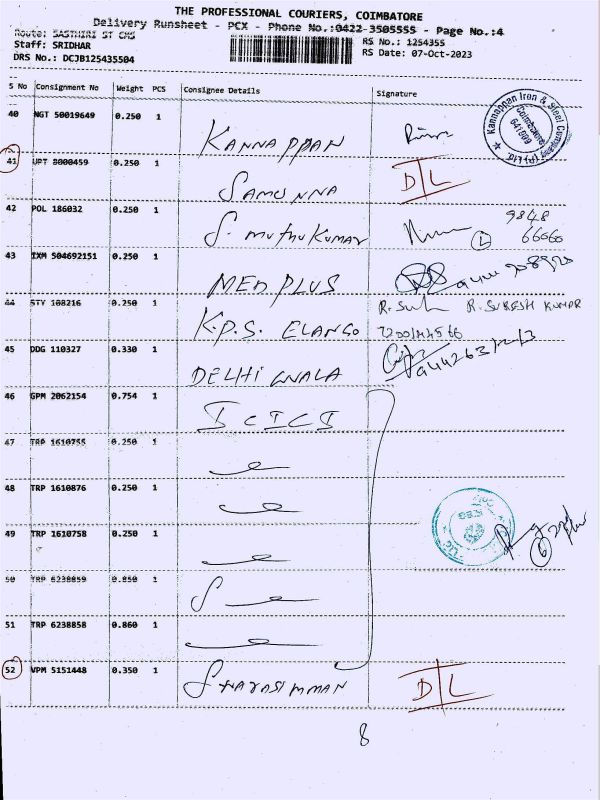 THE PROFESSIONAL COURIERS, COIMBATORE
Delivery Runsheet - PCX - Phone No.:0422-3505555 - Page No.:4
Route: SASTHIRI ST CMS
Staff: SRIDHAR
DRS No.: DCJB125435504
RS No.: 1254355
RS Date: 07-Oct-2023
S No Consignment No Weight PCS Consignee Details Signature
40 NGT 50019649 0.250 1 KANNAPPAN
Kannappan Iron & Steel Company (P) Ltd.
Coimbatore
41 UPT 8000459 0.250 1 D/L
42 POL 186032 0.250 1 S. muthukumar 9848
66060
43 IXM 504692151 0.250 1 MED PLUS
44 STY 108216 0.250 1 K.P.S. ELANGO R. SURESH KUMAR
45 DDG 110327 0.330 1 DELHI WALA
46 GPM 2062154 0.754 1 ICICI
47 TRP 1610755 0.250 1
48 TRP 1610876 0.250 1
49 TRP 1610758 0.250 1
50 TRP 6238859 0.850 1
51 TRP 6238858 0.860 1
52 VPM 5151448 0.350 1 D/L
8